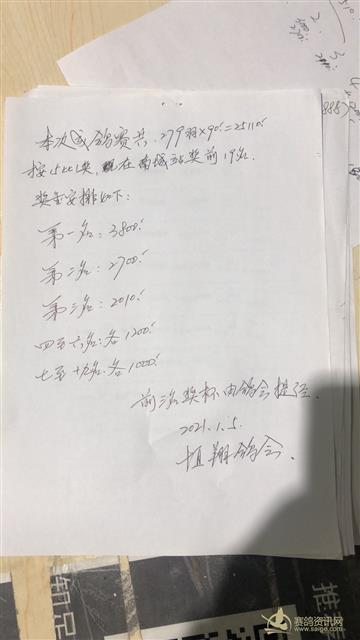 本次成鸽赛共:279羽×90=25110.
按15比1奖,现在 奖前19名.
奖金安排如下:
第一名:3800
第二名:2700
第三名:2010
四至六名:各1200
七至十九名:各1000
前三名奖杯由鸽会提
2021.1.5.
翔鸽会.
885
赛鸽资讯网
www.saige.com